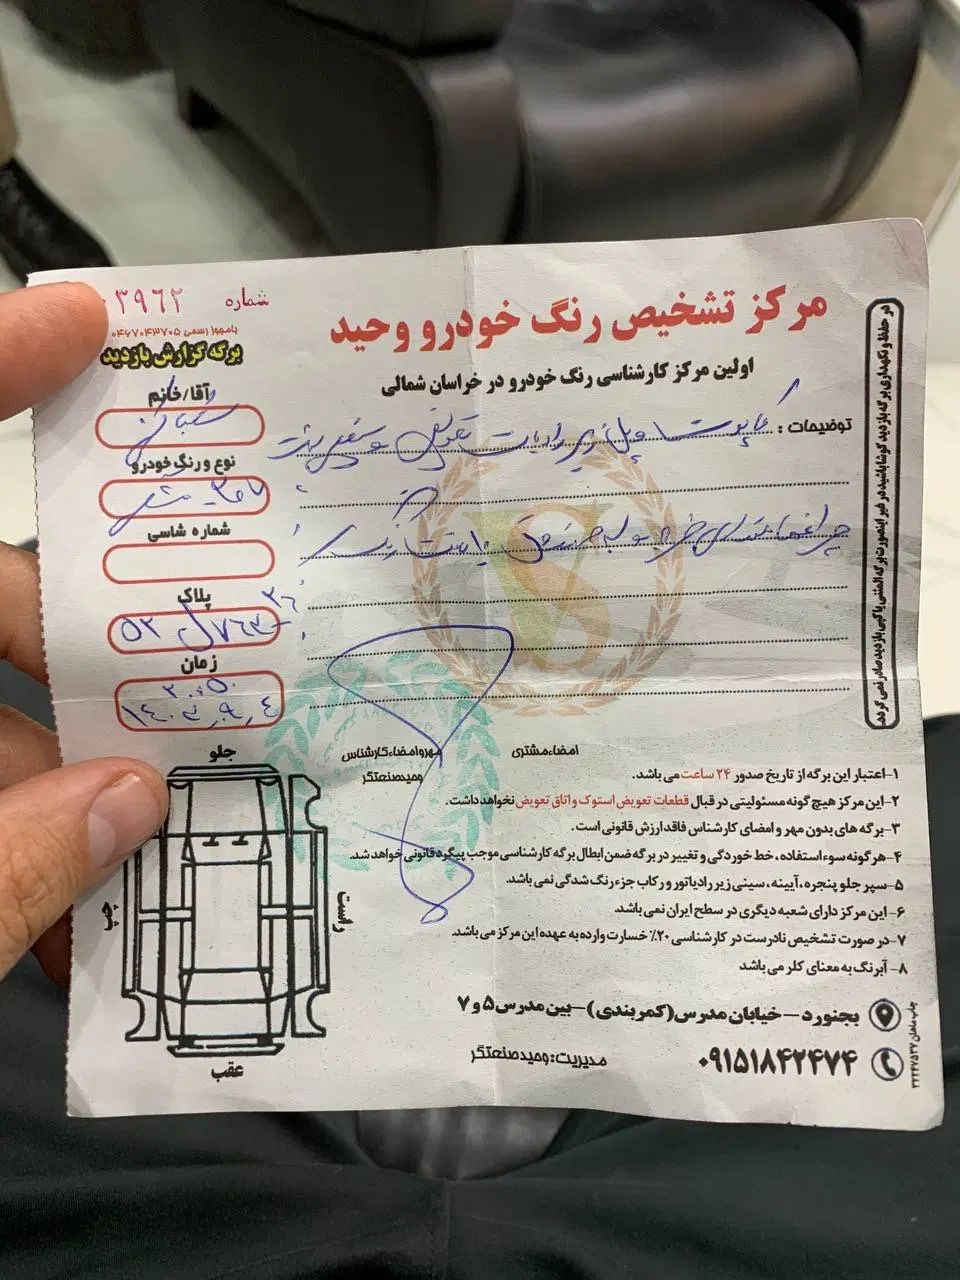 شماره ۰۳۹۶۲
بامجوز رسمی ۰۴۶۷۰۴۳۷۰۵
برگه گزارش بازدید
مرکز تشخیص رنگ خودرو وحید
اولین مرکز کارشناسی رنگ خودرو در خراسان شمالی
آقا/خانم
نوع و رنگ خودرو
۲۰۶
شماره شاسی
پلاک
۵۲ ل ۷۶۳
۲۶
زمان
۲۰:۵۰
توضیحات : کاپوت و پل زیر رادیات تعویض
در حفظ و نگهداری برگه بازدید کوشا باشید در غیر اینصورت برگه المثنی یا کپی بازدید صادر نمی گردد.
جلو
چپ
راست
عقب
مهر و امضاء کارشناس
وحید صنعتگر
امضاء مشتری
۱-اعتبار این برگه از تاریخ صدور ۲۴ ساعت می باشد.
۲-این مرکز هیچ گونه مسئولیتی در قبال قطعات تعویض استوک و اتاق تعویض نخواهد داشت.
۳-برگه های بدون مهر و امضای کارشناس فاقد ارزش قانونی است.
۴-هرگونه سوء استفاده، خط خوردگی و تغییر در برگه ضمن ابطال برگه کارشناسی موجب پیگرد قانونی خواهد شد.
۵-سپر جلو پنجره، آیینه، سینی زیر رادیاتور و رکاب جزء رنگ شدگی نمی باشد.
۶-این مرکز دارای شعبه دیگری در سطح ایران نمی باشد.
۷-در صورت تشخیص نادرست در کارشناسی ۲۰٪ خسارت وارده به عهده این مرکز می باشد.
۸-آبرنگ به معنای کلر می باشد
بجنورد – خیابان مدرس (کمربندی) – بین مدرس ۵ و ۷
۰۹۱۵۱۸۴۲۴۷۴
مدیریت: وحید صنعتگر